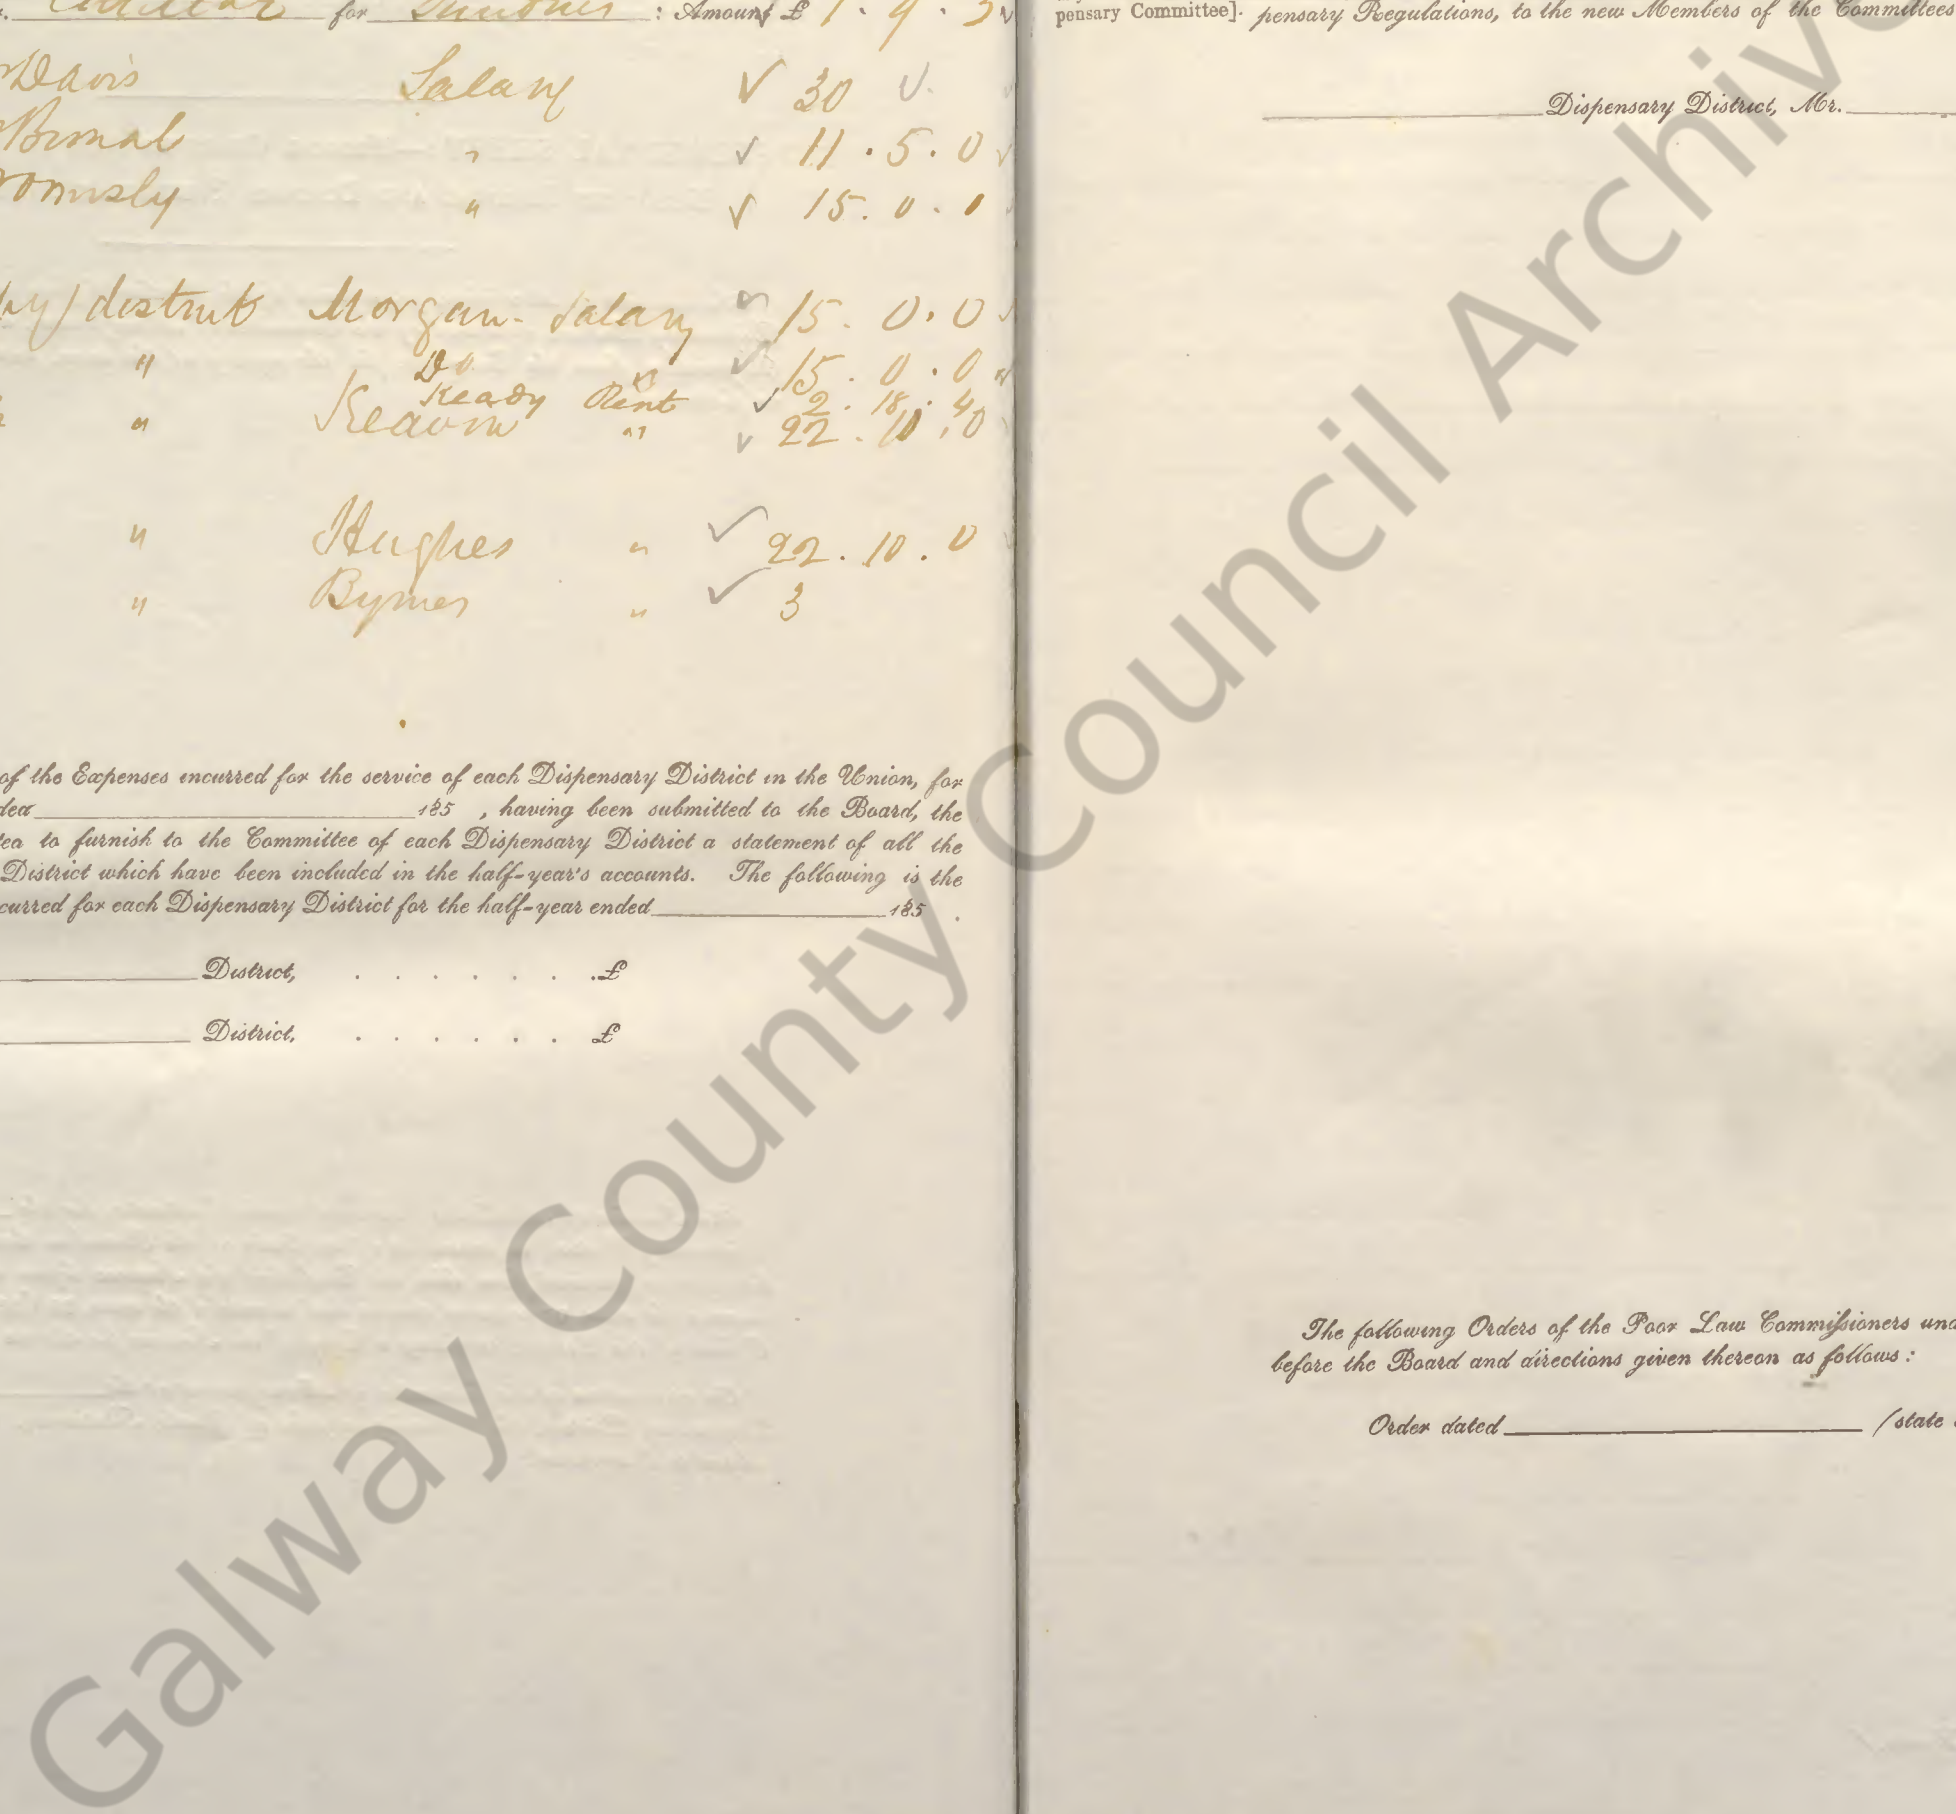 for : Amount £ 1 . 9 . 3
Davis Salary 30
" 11 . 5 . 0
" 15 . 0 . 0
district Morgan - Salary 15 . 0 . 0
" Do " 15 . 0 . 0 "
Keady Rent 2 . 18 . 4
" " 22 . 10 . 0
" Hughes " 22 . 10 . 0
" Byrnes " 3
of the Expenses incurred for the service of each Dispensary District in the Union, for
ded 185 , having been submitted to the Board, the
ted to furnish to the Committee of each Dispensary District a statement of all the
District which have been included in the half-year's accounts. The following is the
curred for each Dispensary District for the half-year ended 185 .
District, . . . . . . . £
District, . . . . . . £
pensary Committee]. pensary Regulations, to the new Members of the Committees
Dispensary District, Mr.
The following Orders of the Poor Law Commissioners und
before the Board and directions given thereon as follows :
Order dated (state
Galway County Council Archive